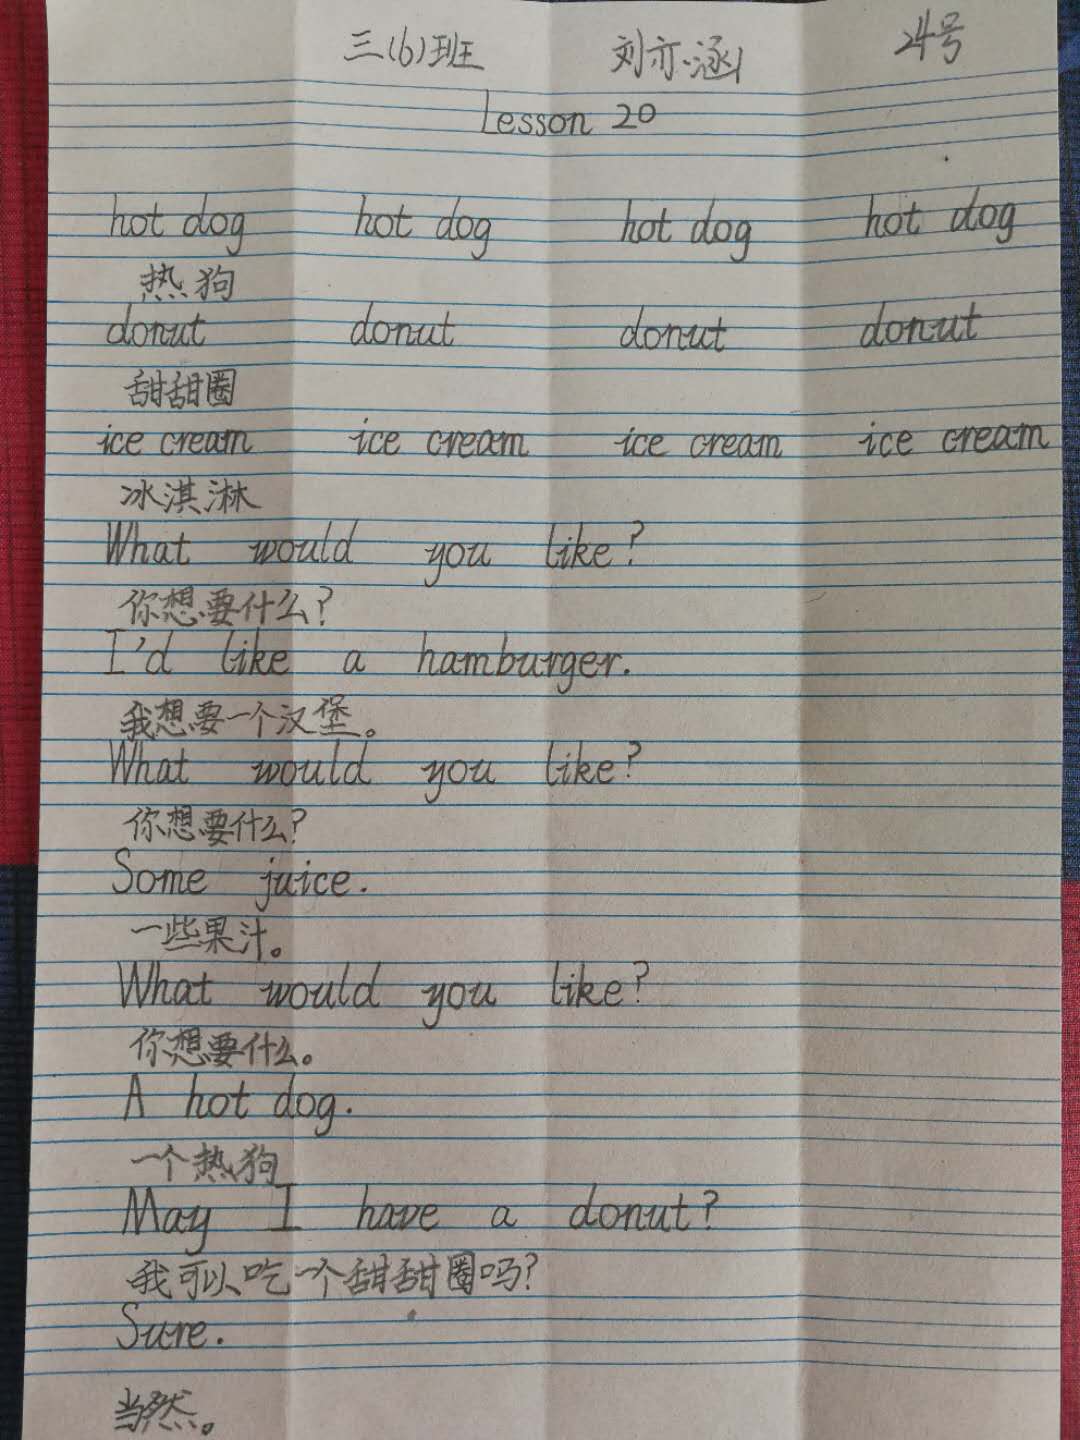 三(6)班 刘亦涵 24号
Lesson 20
hot dog hot dog hot dog hot dog
热狗
donut donut donut donut
甜甜圈
ice cream ice cream ice cream ice cream
冰淇淋
What would you like?
你想要什么?
I'd like a hamburger.
我想要一个汉堡。
What would you like?
你想要什么?
Some juice.
一些果汁。
What would you like?
你想要什么。
A hot dog.
一个热狗
May I have a donut?
我可以吃一个甜甜圈吗?
Sure.
当然。